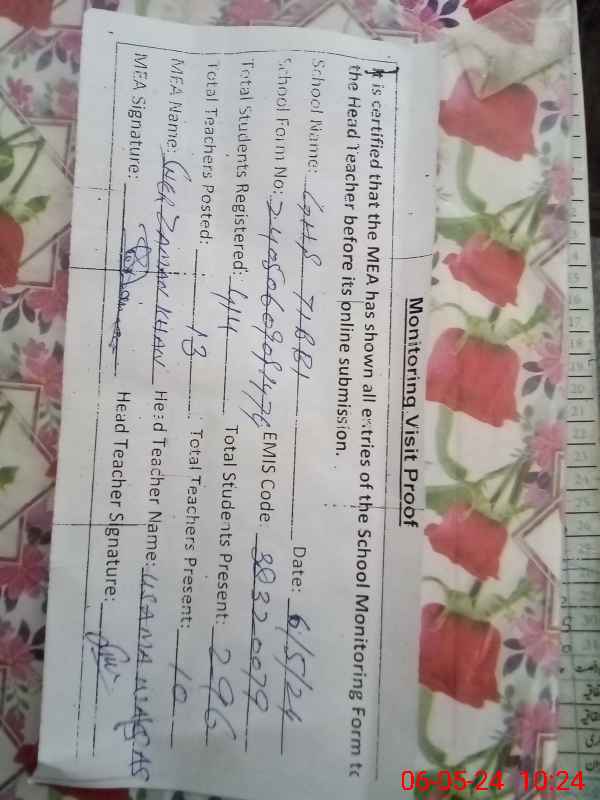 Monitoring Visit Proof
It is certified that the MEA has shown all entries of the School Monitoring Form to
the Head Teacher before its online submission.
School Name: GHS TIBBI Date: 6/5/24
School Form No: EMIS Code:
Total Students Registered: 414 Total Students Present: 296
Total Teachers Posted: 13 Total Teachers Present: 10
MEA Name: KHAN Head Teacher Name: USAMA
MEA Signature: Head Teacher Signature:
15
16
17
18
19
20
21
22
23
24
25
26
30
31
06-05-24 10:24